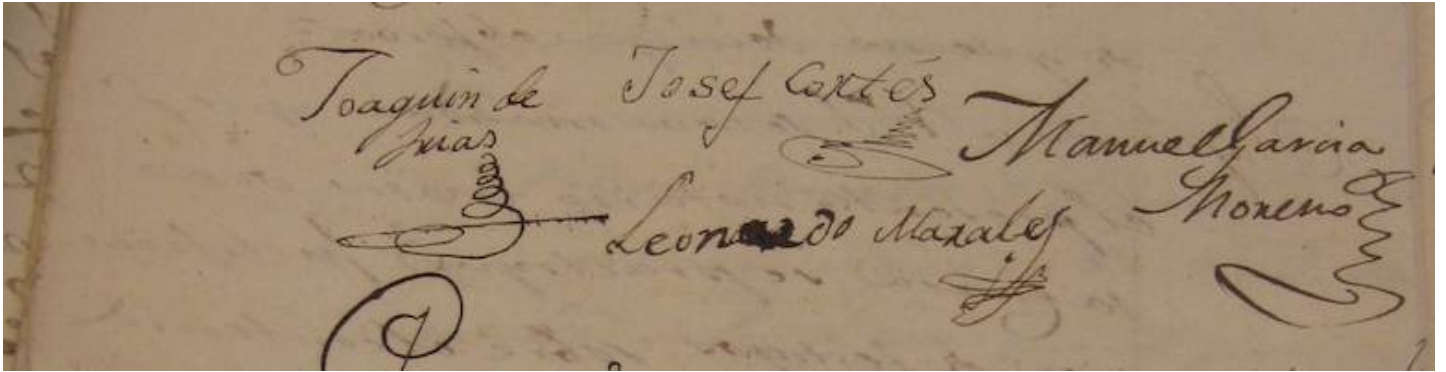 Joaquin de
Josef Cortés
Manuel Garcia
Moreno
Leonardo Morales